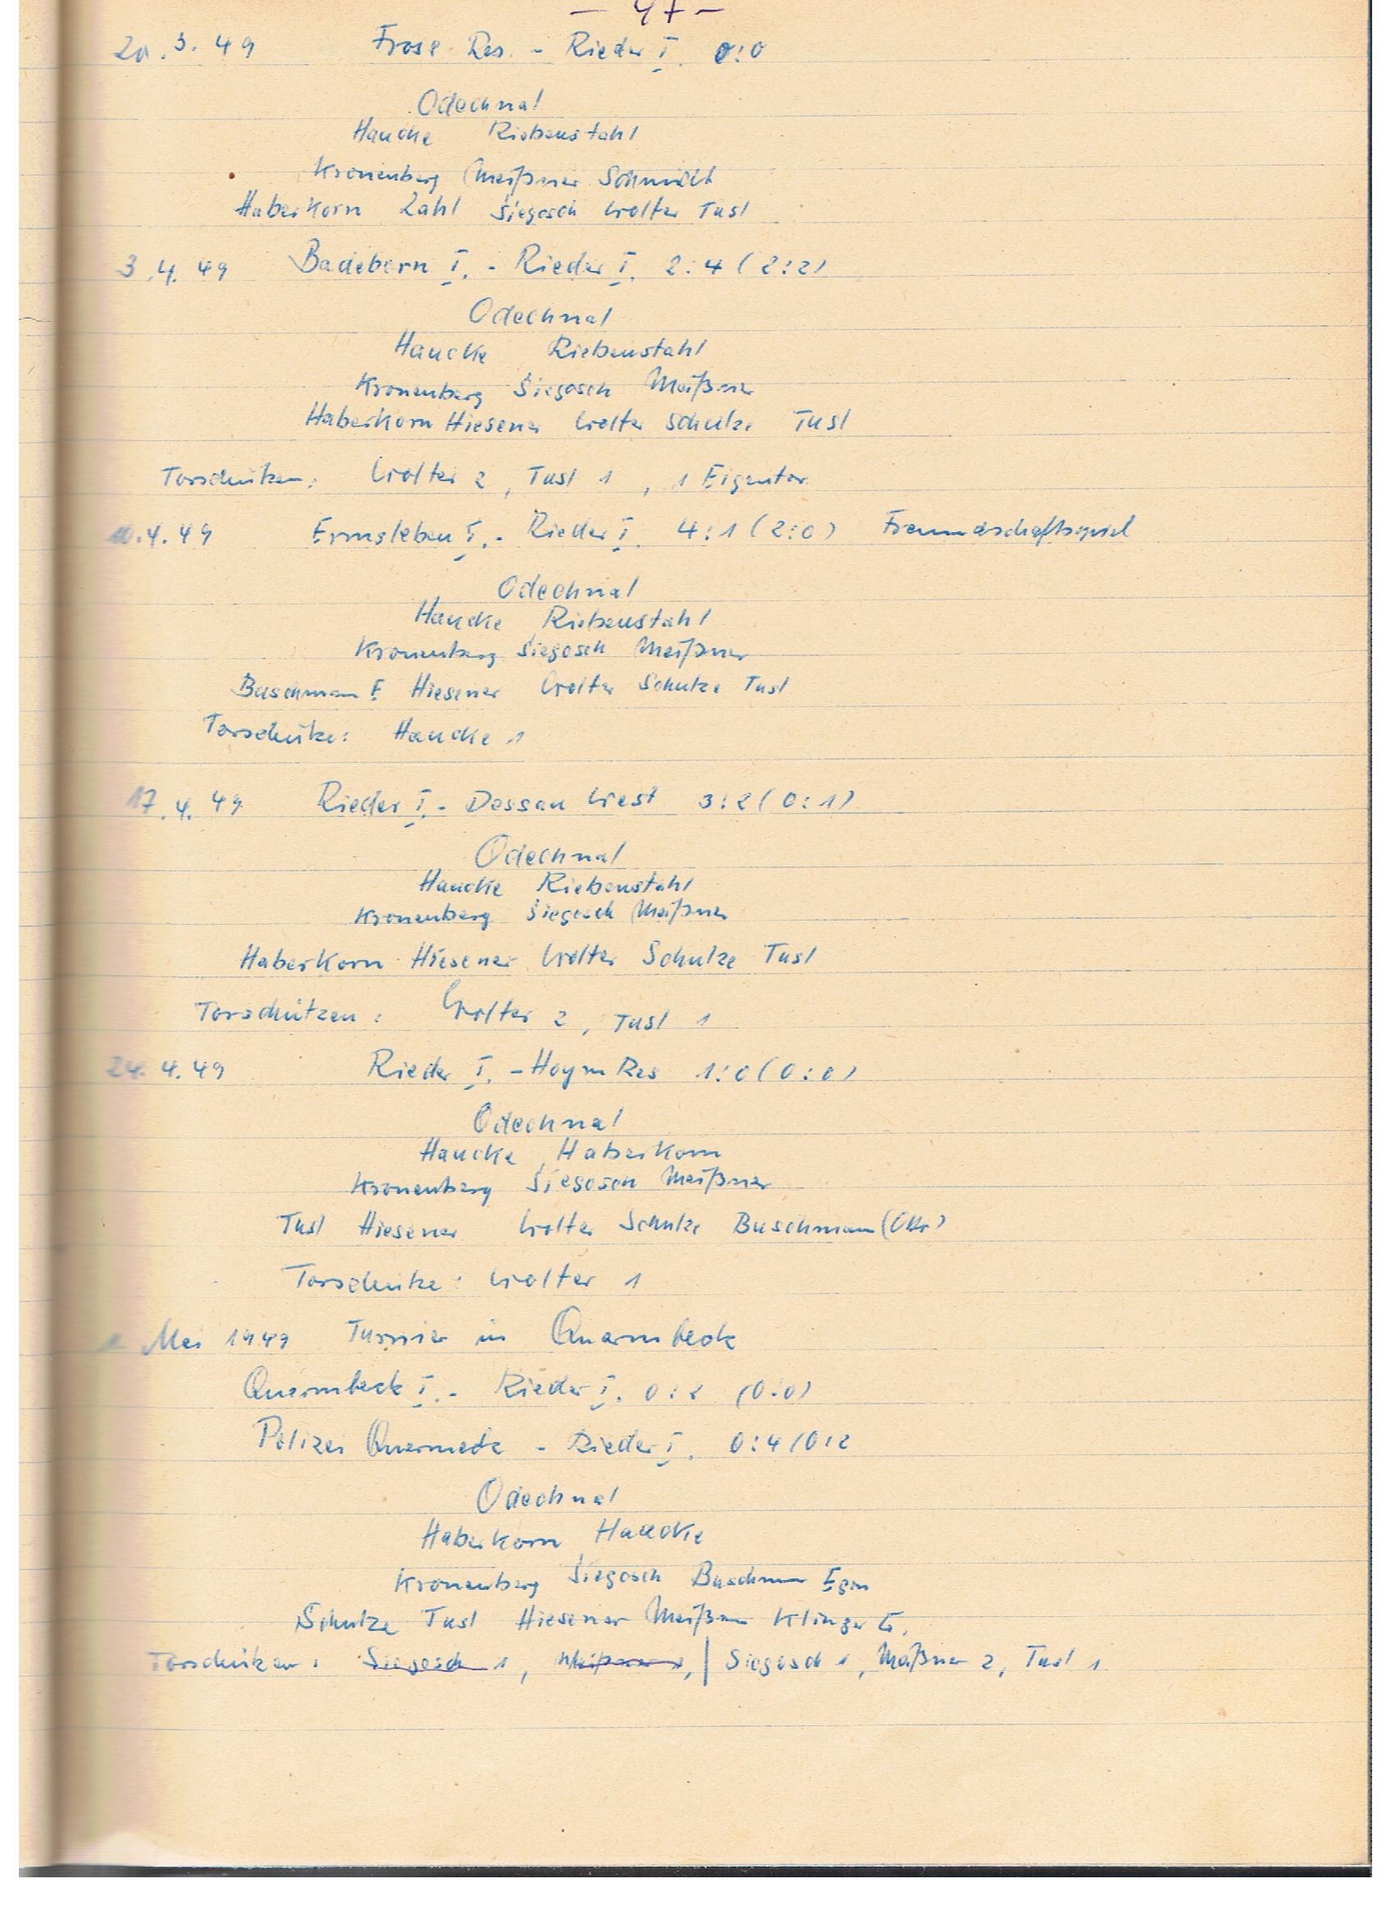 - 47 -
20.3.49 Frose Res. - Rieder I. 0:0
Odechnal
Haucke Riebenstahl
Kronenberg Meißner Schmidt
Haberkorn Zahl Siegosch Wolter Tusl
3.4.49 Badeborn I. - Rieder I. 2:4 (2:2)
Odechnal
Haucke Riebenstahl
Kronenberg Siegosch Meißner
Haberkorn Hiesener Wolter Schulze Tusl
Torschützen: Wolter 2, Tusl 1, 1 Eigentor
10.4.49 Ermsleben I. - Rieder I. 4:1 (2:0) Freundschaftsspiel
Odechnal
Haucke Riebenstahl
Kronenberg Siegosch Meißner
Buschmann E Hiesener Wolter Schulze Tusl
Torschütze: Haucke 1
17.4.49 Rieder I. - Dessau West 3:2 (0:1)
Odechnal
Haucke Riebenstahl
Kronenberg Siegosch Meißner
Haberkorn Hiesener Wolter Schulze Tusl
Torschützen: Wolter 2, Tusl 1
24.4.49 Rieder I. - Hoym Res 1:0 (0:0)
Odechnal
Haucke Haberkorn
Kronenberg Siegosch Meißner
Tusl Hiesener Wolter Schulze Buschmann
Torschütze: Wolter 1
1. Mai 1949 Turnier in Quarmbeck
Quarmbeck I. - Rieder I. 0:2 (0:0)
Polizei Quarmeck - Rieder I. 0:4 (0:2
Odechnal
Haberkorn Haucke
Kronenberg Siegosch Buschmann Egon
Schulze Tusl Hiesener Meißner Klinger E.
Torschützen: Siegosch 1, Meißner 1, | Siegosch 1, Meißner 2, Tusl 1